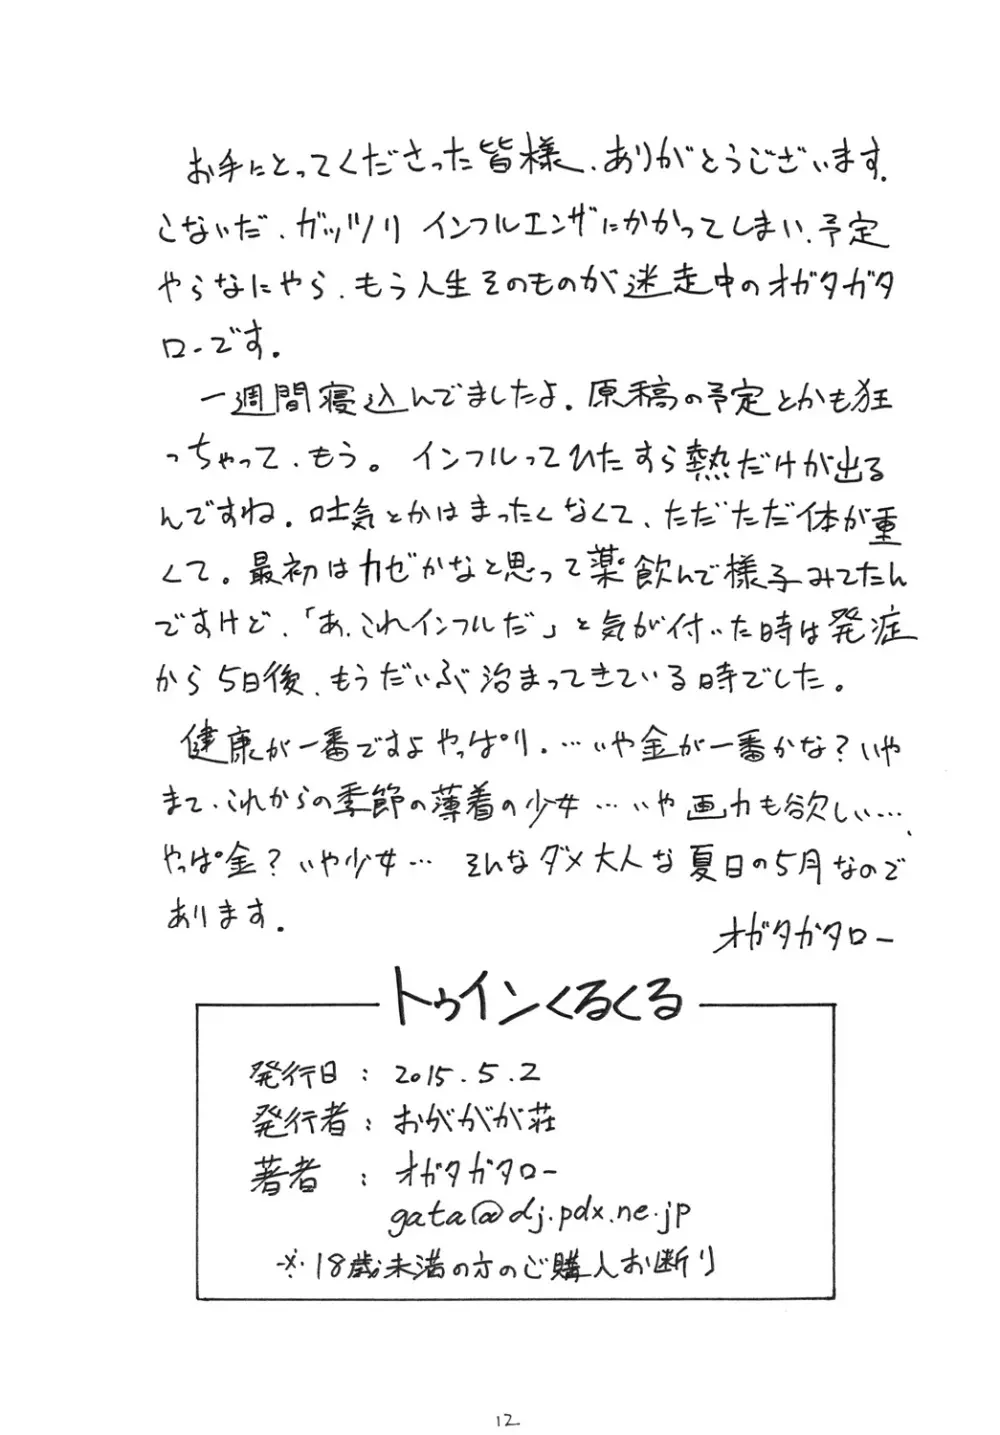 お手にとってくださった皆様、ありがとうございます。
こないだ、ガッツリ インフルエンザにかかってしまい、予定
やらなにやら、もう人生そのものが迷走中のオガタガタ
ローです。
一週間寝込んでましたよ。原稿の予定とかも狂
っちゃって、もう。インフルってひたすら熱だけが出る
んですね。吐気とかはまったくなくて、ただただ体が重
くて。最初はカゼかなと思って薬飲んで様子みてたん
ですけど、「あ、これインフルだ」と気が付いた時は発症
から5日後、もうだいぶ治まってきている時でした。
健康が一番ですよやっぱり。…いや金が一番かな?いや
まて、これからの季節の薄着の少女…いや画力も欲しい…、
やっぱ金?いや少女… そんなダメ大人な夏日の5月なので
あります。
オガタガタロー
トゥインくるくる
発行日：2015.5.2
発行者：おがががが荘
著者：オガタガタロー
gata@dj.pdx.ne.jp
※18歳未満の方のご購入お断り
12